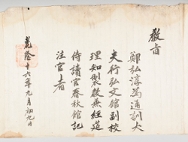 敎旨
鄭弘淳爲通訓大
夫行弘文館副校
理知製敎兼經筵
侍讀官春秋館記
注官者
乾隆十六年九月初九日